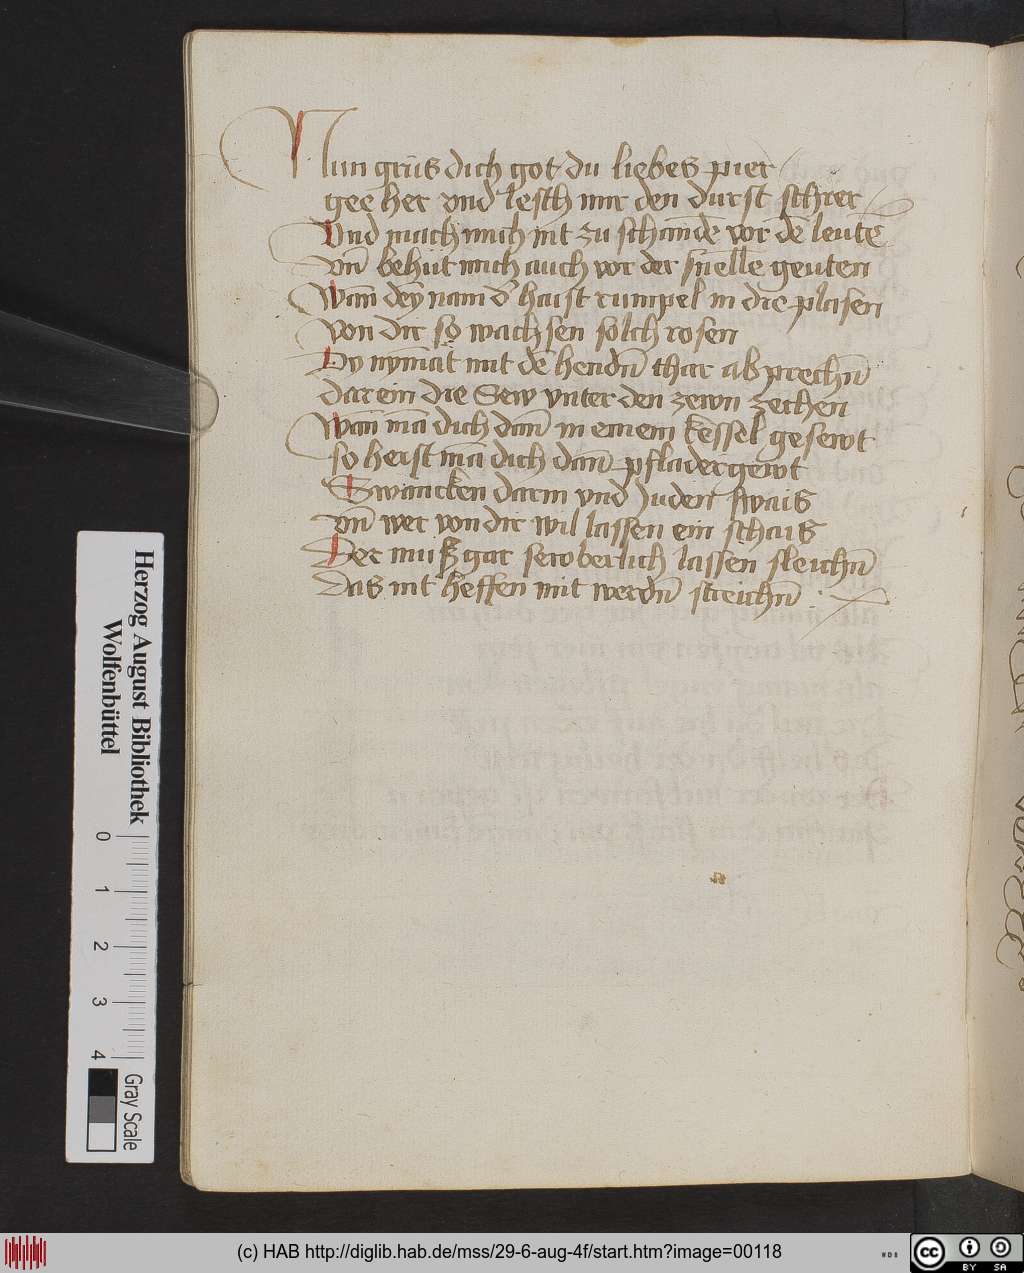 Nun grüs dich got du liebes pier
gee her vnd lesch mir den durst schier
Vnd mach mich nit zu schandē vor dē leutē
vn̄ behüt mich auch vor der snelle geuten
Wān deȳ nam d' haist rumpel in die plasen
von dir so wachsen solch rosen
Dy nymāt mit dē hendn̄ thar abprechn̄
darein die Sew vnter den zewn zechen
Wān mā dich dan̄ in einem kessel gesewt
so heist mā dich dan̄ pfladergewt
Swancken darm vnd Juden swais
vn̄ wer von dir wil lassen ein schais
Der muß gar seuberlich lassen sleichn̄
Das nit heffen mit werdn̄ streichn̄
Herzog August Bibliothek
Wolfenbüttel
0 1 2 3 4
Gray Scale
(c) HAB http://diglib.hab.de/mss/29-6-aug-4f/start.htm?image=00118
WDB
cc BY SA